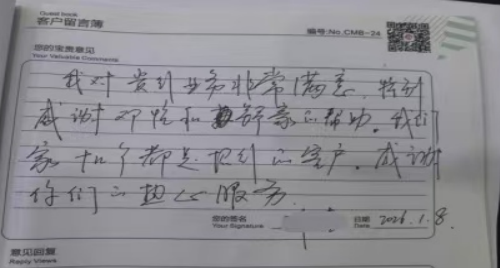 Guest book
客户留言簿
编号:No.CMB-24
您的宝贵意见
Your Valuable Comments
我对贵行业务非常满意.特别
感谢邓恺和解豪的帮助.我们
家十几个都是招行的客户.感谢
你们的热心服务.
您的签名
Your Signature
日期
Date
2026.1.8.
意见回复
Reply Views